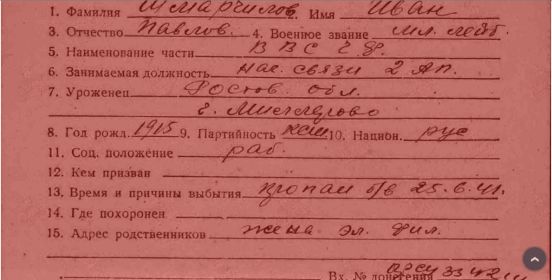 1. Фамилия Шмаргилов 2. Имя Иван
3. Отчество Павлов. 4. Военное звание мл. лейт.
5. Наименование части ВВС С.Ф.
6. Занимаемая должность нач. связи 2 АП.
7. Уроженец Ростов. обл.
г.
8. Год рожд. 1915 9. Партийность ксм 10. Национ. рус
11. Соц. положение раб.
12. Кем призван
13. Время и причины выбытия пропал б/в 25.6.41.
14. Где похоронен
15. Адрес родственников жена
Вх. № донесения